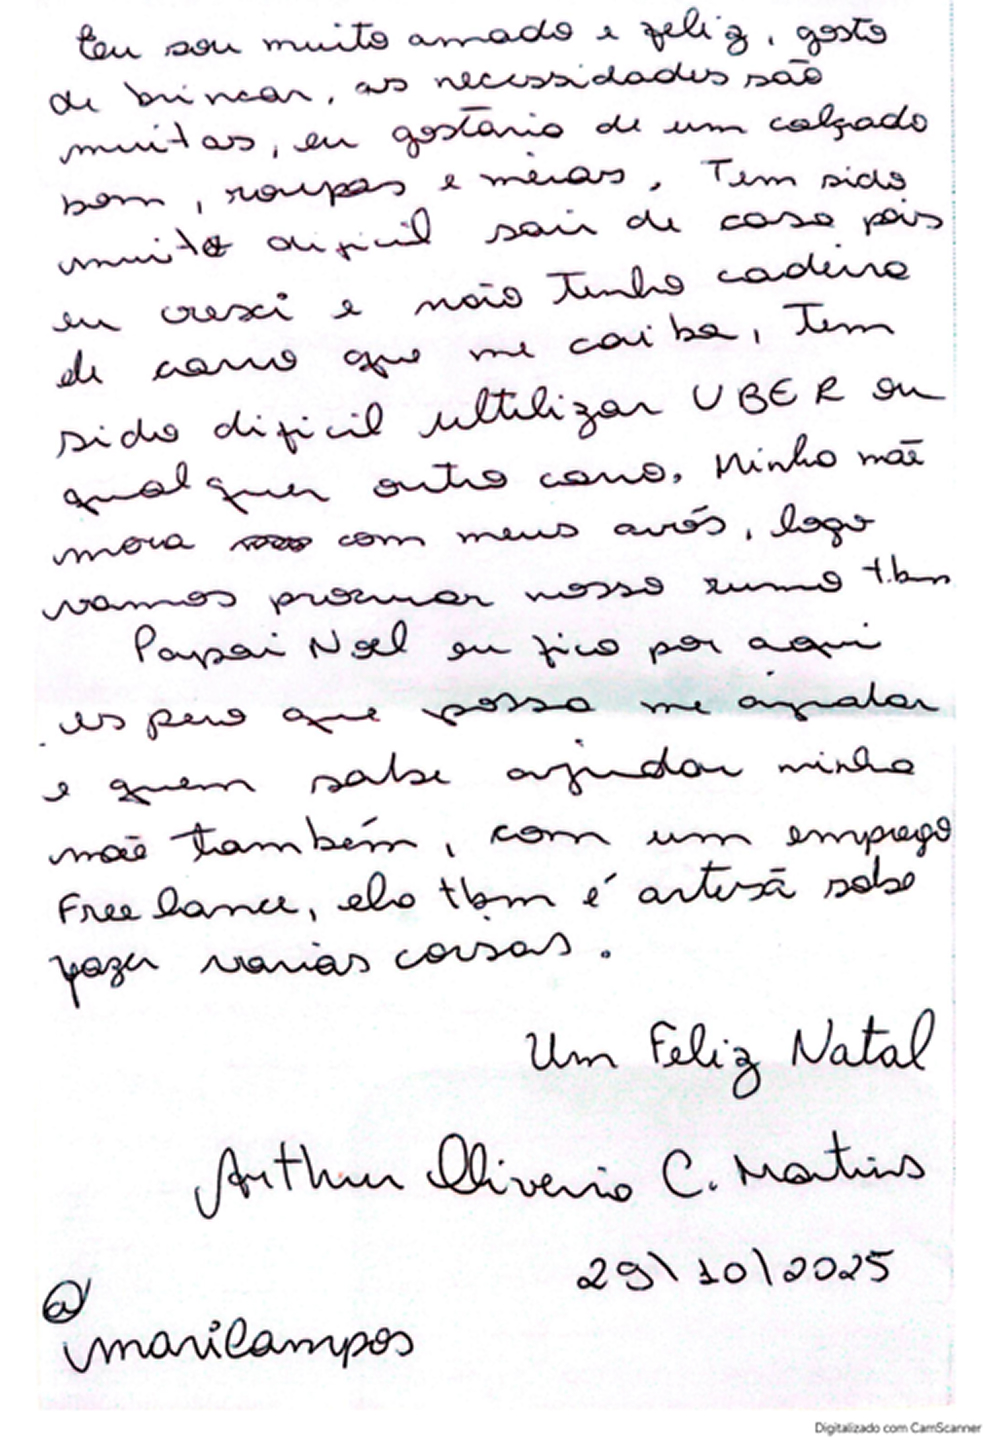 Eu sou muito amado e feliz, gosto
de brincar, as necessidades são
muitas, eu gostaria de um calçado
bom, roupas e meias. Tem sido
muito dificil sair de casa pois
eu cresci e não tenho cadeira
de carro que me caiba, Tem
sido dificil ultilizar UBER ou
qualquer outro carro. Minha mãe
mora com meus avós, logo
vamos procurar nosso rumo tbm
Papai Noel eu fico por aqui
espero que possa me ajudar
e quem sabe ajudar minha
mãe também, com um emprego
Free lance, ela tbm é artesã sabe
fazer varias coisas.
Um Feliz Natal
Arthur Oliverio C. Martins
29\10\2025
@
maricampos
Digitalizado com CamScanner